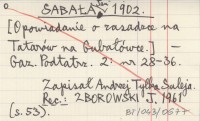 SABAŁA, 1902.
[Opowiadanie o zasadzce na
Tatarów na Gubałówce.] —
Gaz. Podtatrz. 2: nr 28-36.
Zapisał Andrzej Tylka Suleja.
Rec.: ZBOROWSKI J. 1961
(s. 53).